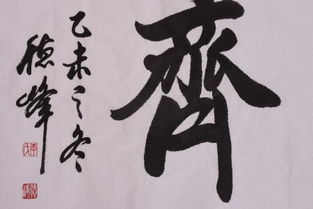 齊
乙未之冬
德峰